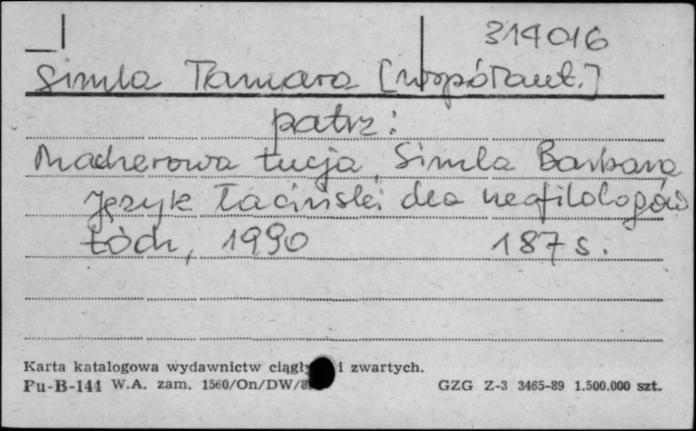 314016
Simla Tamara [współaut.]
patrz:
Macherowa Łucja, Simla Barbara
Język łaciński dla neofilologów
Łódź, 1990 187 s.
Karta katalogowa wydawnictw i zwartych.
Pu-B-144 W.A. zam. 1560/On/DW/ GZG Z-3 3465-89 1.500.000 szt.